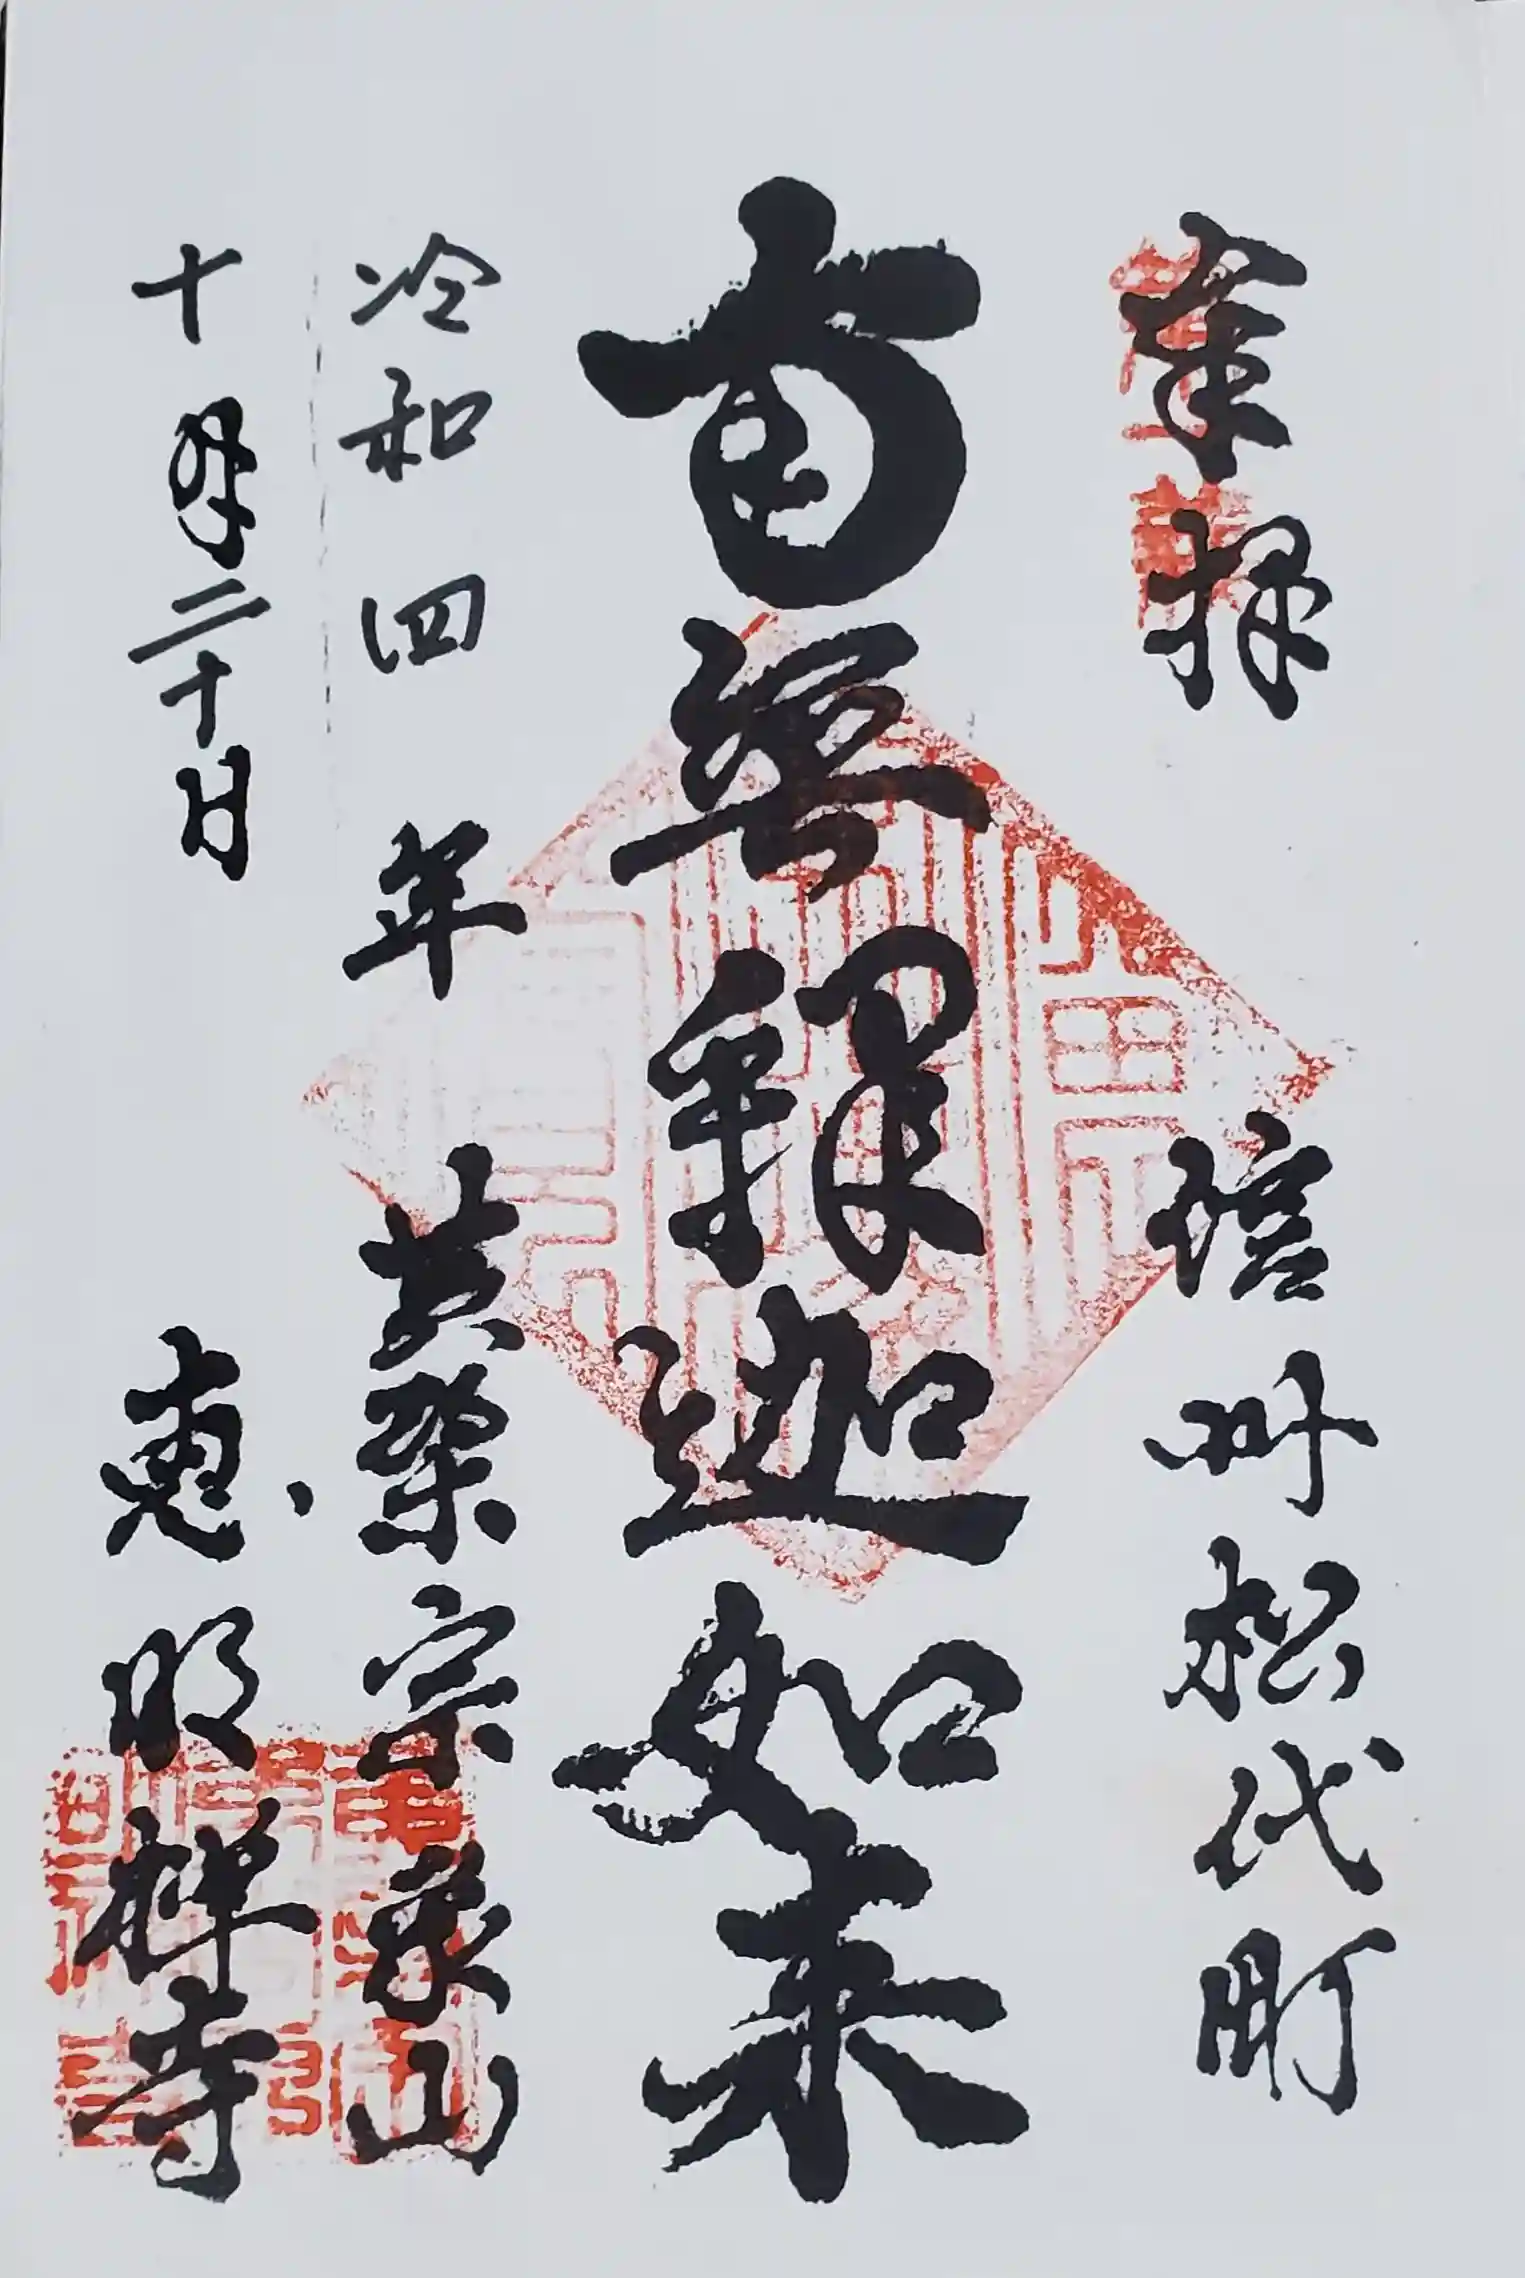 奉拝
信州松代町
南無釋迦如来
令和四年
黄檗宗象山
十月二十日
恵明禅寺